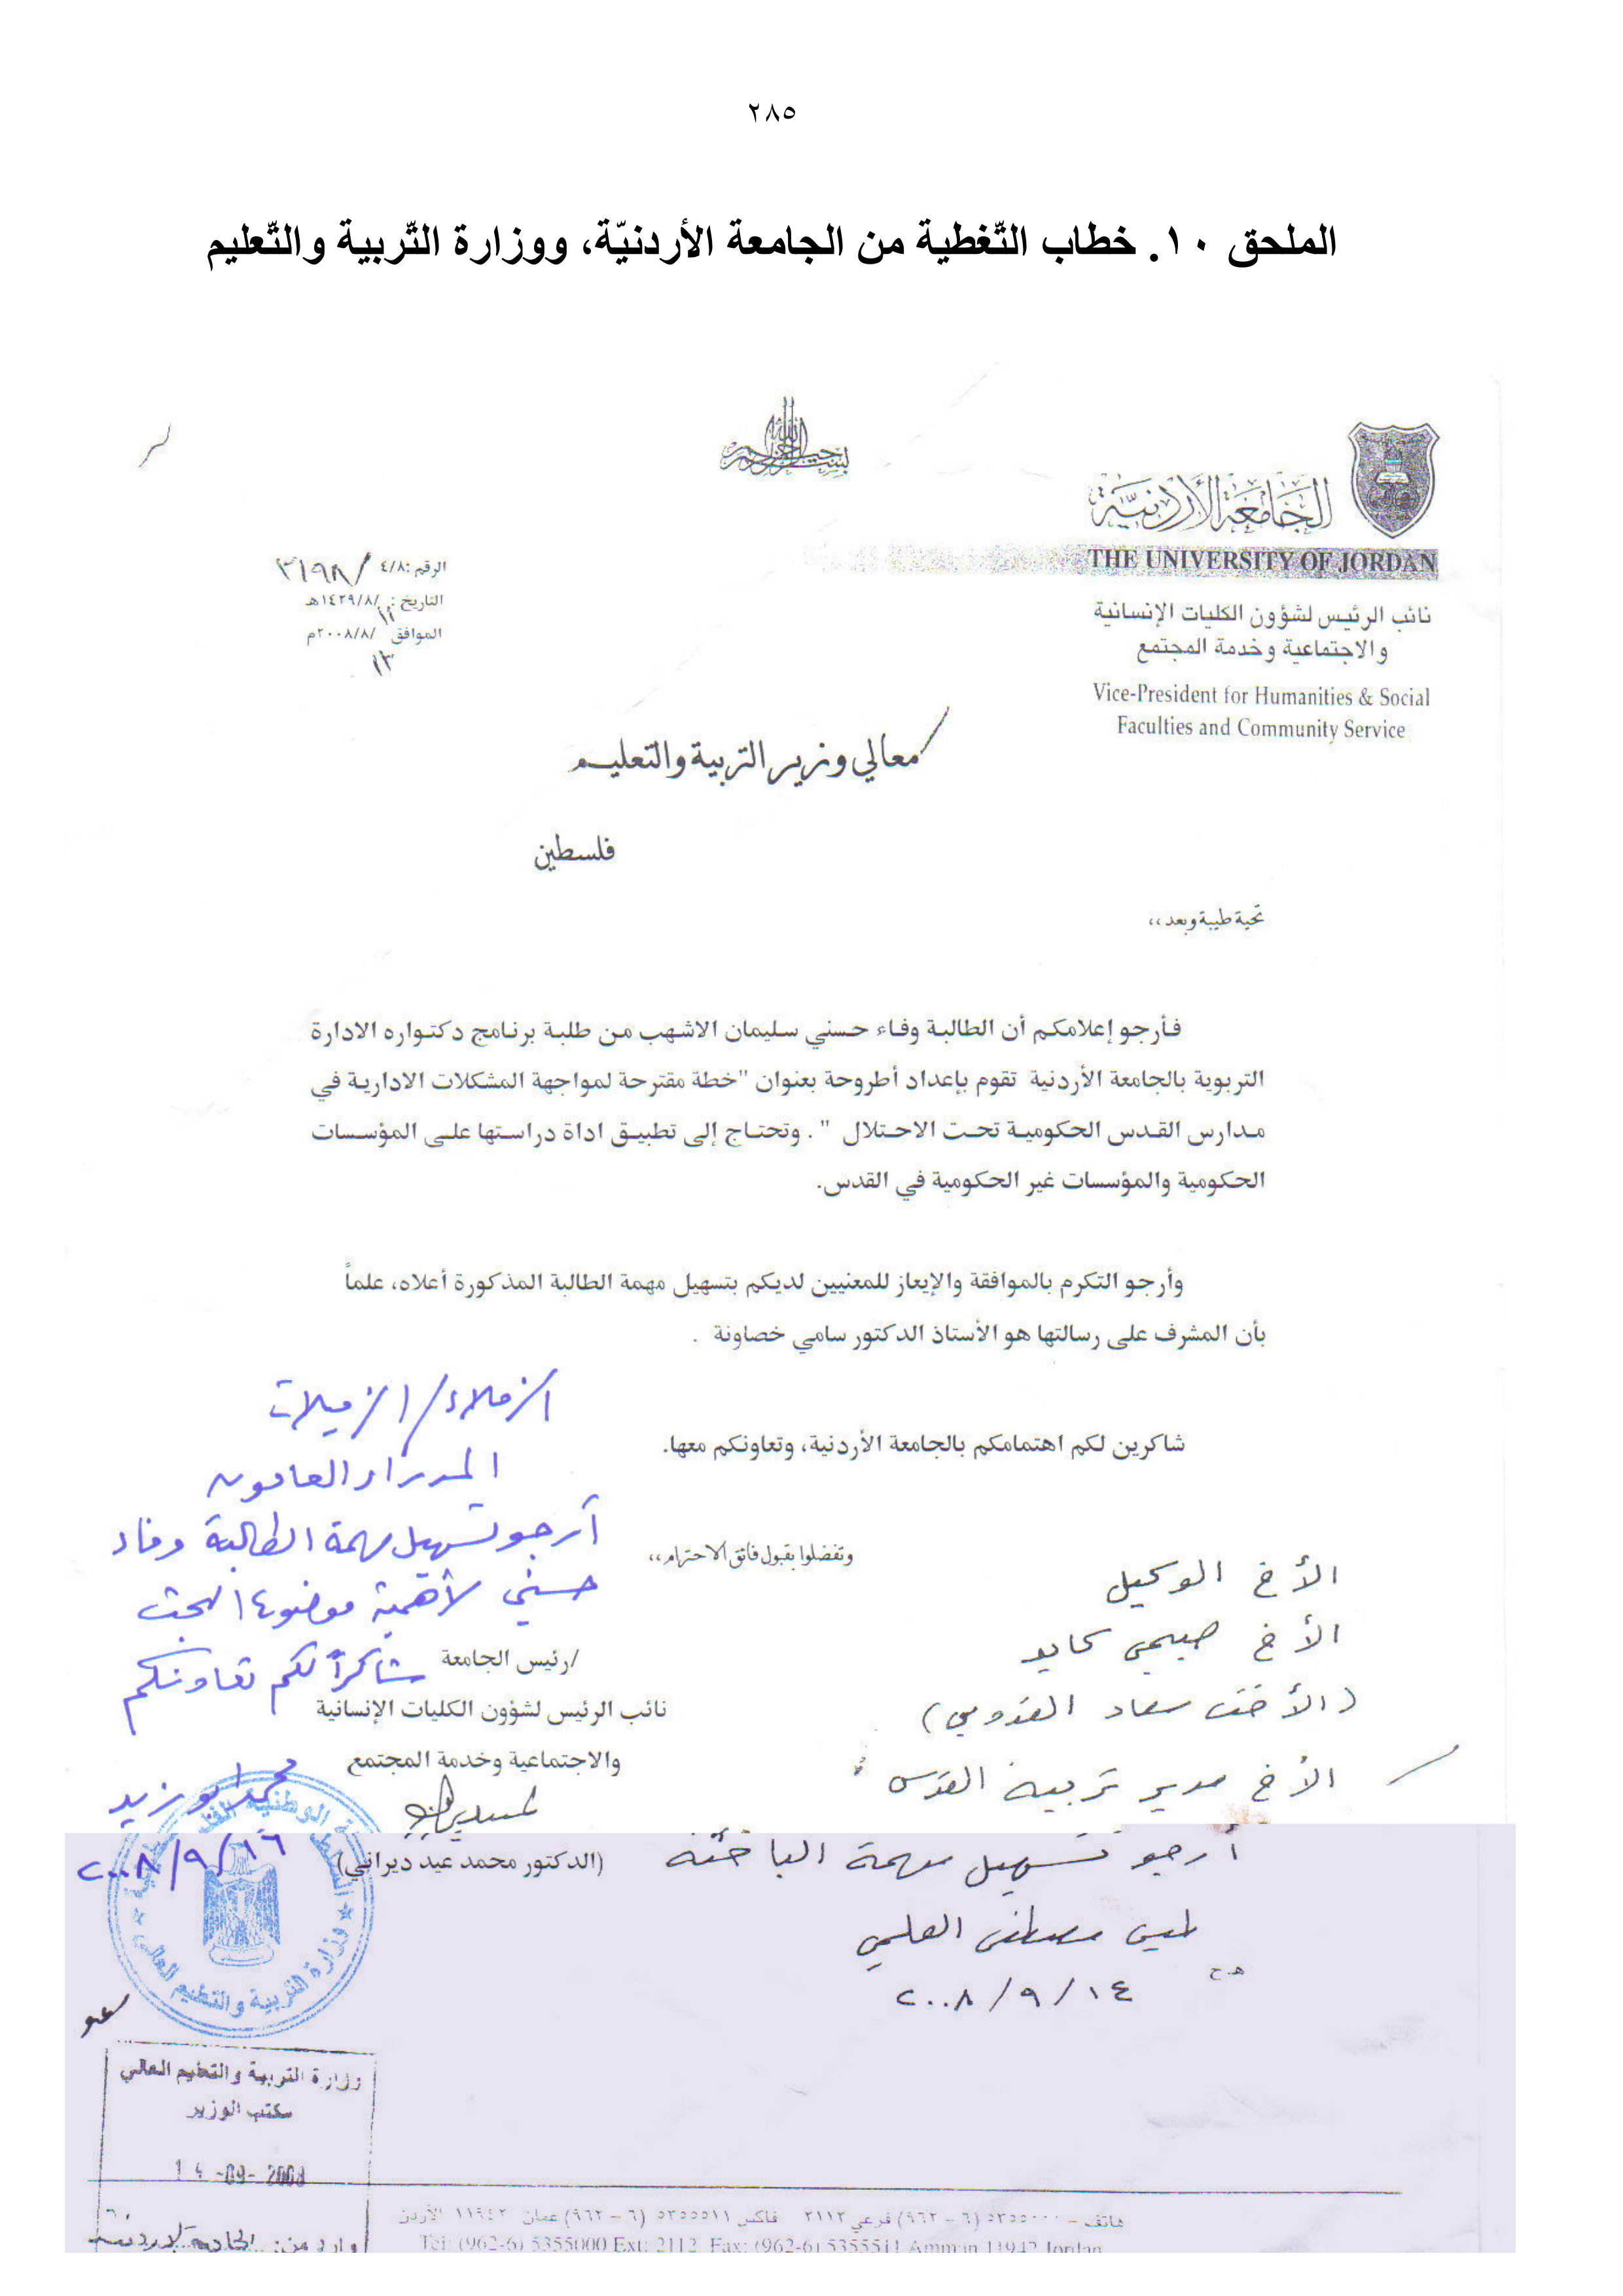 ٢٨٥
الملحق ١٠. خطاب التّغطية من الجامعة الأردنيّة، ووزارة التّربية والتّعليم
بسم الله الرحمن الرحيم
الجامعة الأردنية
THE UNIVERSITY OF JORDAN
نائب الرئيس لشؤون الكليات الإنسانية
والاجتماعية وخدمة المجتمع
Vice-President for Humanities & Social
Faculties and Community Service
الرقم: ٤/٨/ ٣١٩٨
التاريخ: ١١/٨/١٤٢٩هـ
الموافق ١٣/٨/٢٠٠٨م
معالي وزير التربية والتعليم
فلسطين
تحية طيبة وبعد،،
فأرجو إعلامكم أن الطالبة وفاء حسني سليمان الاشهب من طلبة برنامج دكتواره الادارة
التربوية بالجامعة الأردنية تقوم بإعداد أطروحة بعنوان "خطة مقترحة لمواجهة المشكلات الادارية في
مدارس القدس الحكومية تحت الاحتلال " . وتحتاج إلى تطبيق اداة دراستها على المؤسسات
الحكومية والمؤسسات غير الحكومية في القدس.
وأرجو التكرم بالموافقة والإيعاز للمعنيين لديكم بتسهيل مهمة الطالبة المذكورة أعلاه، علماً
بأن المشرف على رسالتها هو الأستاذ الدكتور سامي خصاونة .
شاكرين لكم اهتمامكم بالجامعة الأردنية، وتعاونكم معها.
وتفضلوا بقبول فائق الاحترام،،
/رئيس الجامعة
نائب الرئيس لشؤون الكليات الإنسانية
والاجتماعية وخدمة المجتمع
(الدكتور محمد عيد ديراني)
الزملاء/ الزميلات
المدراء العامون
أرجو تسهيل مهمة الطالبة وفاء
حسني لأهمية موضوع البحث
شاكراً لكم تعاونكم
محمد ابو زيد
٢٠٠٨/٩/١٦
الأخ الوكيل
الأخ صبحي كايد
(الأخت سعاد القدومي)
الأخ مدير تربية القدس
أرجو تسهيل مهمة الباحثة
لميس مصطفى العلمي
٢٠٠٨/٩/١٤
وزارة التربية والتعليم العالي
وزارة التربية والتعليم العالي
مكتب الوزير
14 -09- 2008
وارد من: الجامعة الاردنية
هاتف – ٥٣٥٥٠٠٠ (٦ – ٩٦٢) فرعي ٢١١٢ فاكس ٥٣٥٥٥١١ (٦ – ٩٦٢) عمان ١١٩٤٢ الأردن
Tel: (962-6) 5355000 Ext: 2112 Fax: (962-6) 5355511 Amman 11942 Jordan